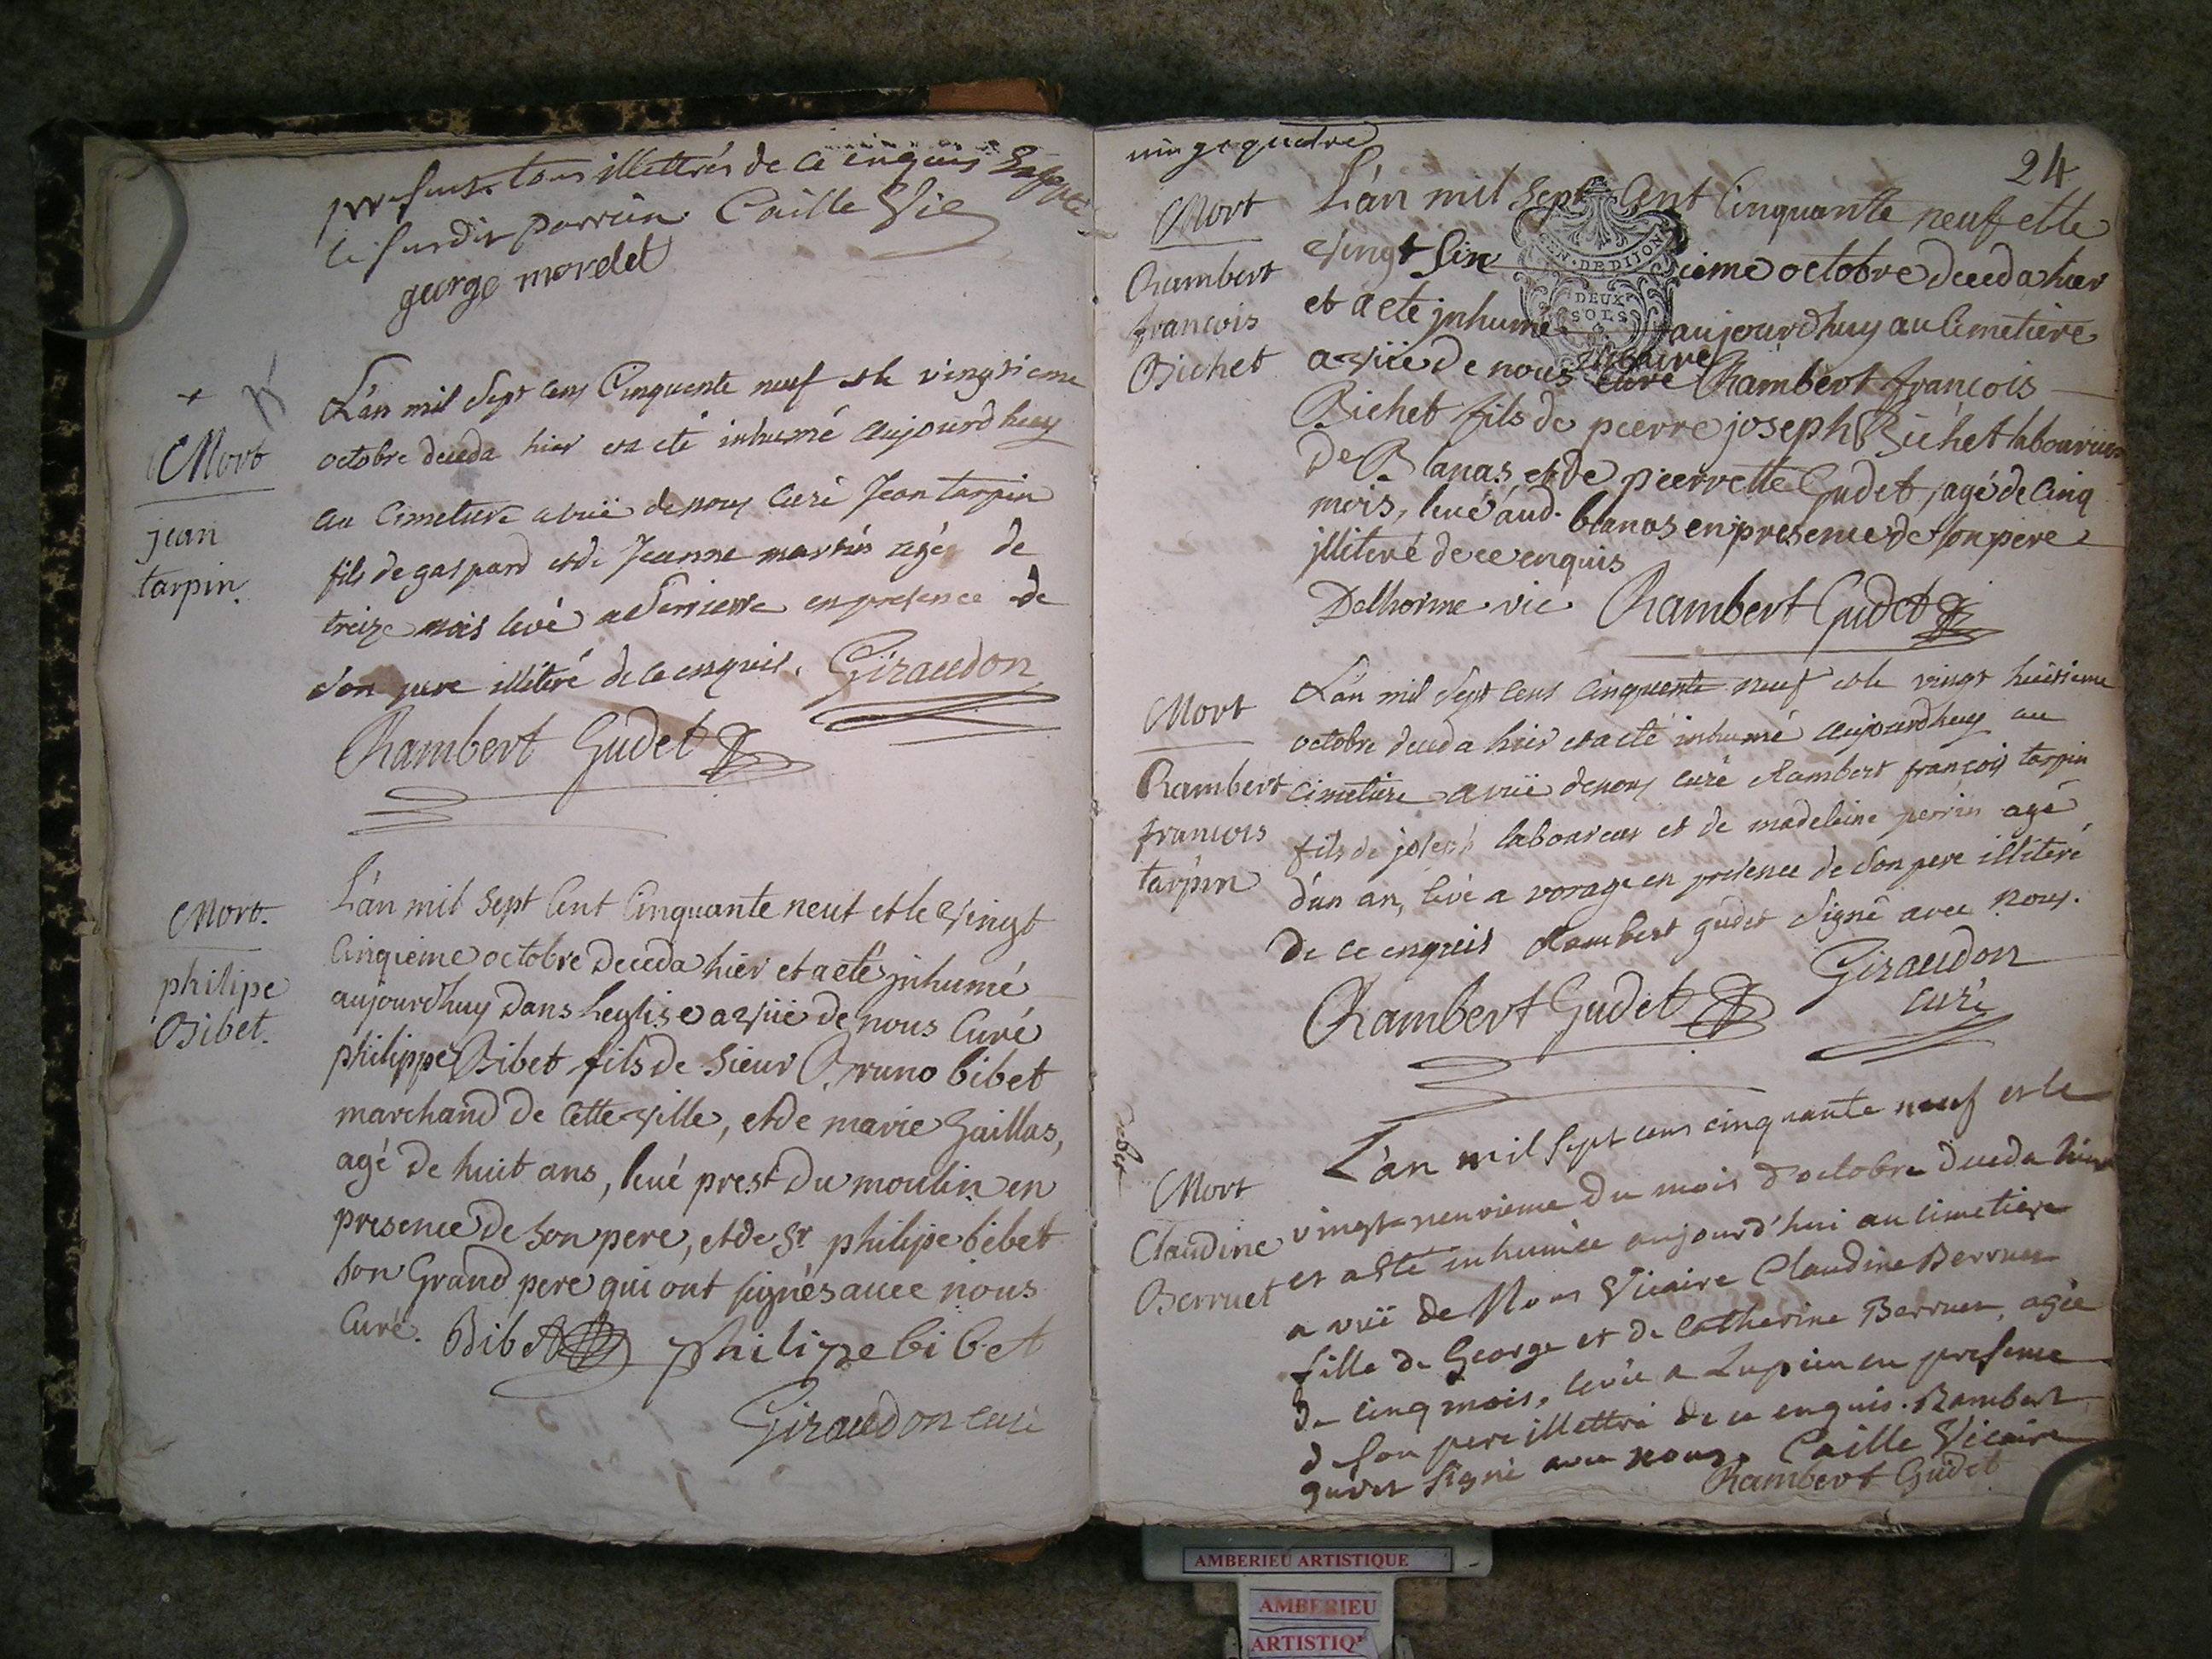 presents tous illettrés de ce enquis Excepté
le susdit parrein Caille Vic
george mordet
+
Mort
jean
tarpin.
L'an mil sept cens Cinquente neuf et le vingtieme
octobre deceda hier et a eté inhumé aujourdhuy
au Cimetiere a vüe de nous curé Jean tarpin
fils de gaspard et de Jeanne martin agé de
treize mois levé a
en presence de
son pere illiteré de ce enquis. Giraudon
Rambert Gudet
Mort.
philipe
Bibet.
L'an mil sept Cent Cinquante neuf et le vingt
Cinquieme octobre deceda hier et a eté jnhumé
aujourdhuy dans leglise a vüe de nous Curé
philippe Bibet fils de sieur Bruno bibet
marchand de Cette ville, et de marie Gaillas,
agé de huit ans, levé prest du moulin en
presence de son pere, et de Sr. philipe bibet
son Grand pere qui ont signés avec nous
Curé. Bibet philipe bibet
Giraudon curé
vingt quatre
24
Mort
Rambert
françois
Bichet
L'an mil sept Cent Cinquante neuf et le
vingt sixieme octobre deceda hier
GEN. DE DIJON
DEUX
SOLS
et a eté jnhumé aujourdhuy au Cimetiere
vicaire
a vüe de nous Curé Rambert françois
Bichet fils de pierre joseph Bichet laboureur
De Blanas et de pierrette Gudet, agé de Cinq
mois, levé aud. blanas en presence de son pere
jlliteré de ce enquis
Delhorme vic Rambert Gudet
Mort
Rambert
francois
tarpin
L'an mil sept cens cinquente neuf et le vingt huitieme
octobre deceda hier et a eté inhumé aujourdhuy au
cimetiere a vüe de nous curé Rambert françois tarpin
fils de joseph laboureur et de madeleine perrin agé
d'un an, levé a vorage en presence de son pere illiteré
de ce enquis Rambert gudet signé avec nous.
Rambert Gudet Giraudon
curé
Mort
Claudine
Berruet
L'an mil sept cens cinquante neuf et le
vingt-neuvieme du mois d'octobre deceda hier
et a eté inhumée aujourd'hui au cimetiere
a vüe de Nous Vicaire Claudine Berruet
fille de George et de Catherine Berruet, agée
de cinq mois, levée a Lupieu en presence
d son pere illettré de ce enquis. Rambert
gudet signé avec nous. Caille Vicaire
Rambert Gudet
AMBERIEU ARTISTIQUE
AMBERIEU
ARTISTIQ